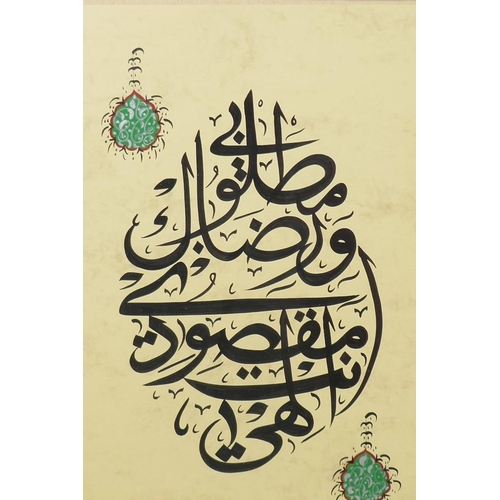 إلهي أنت مقصودي ورضاك مطلوبي